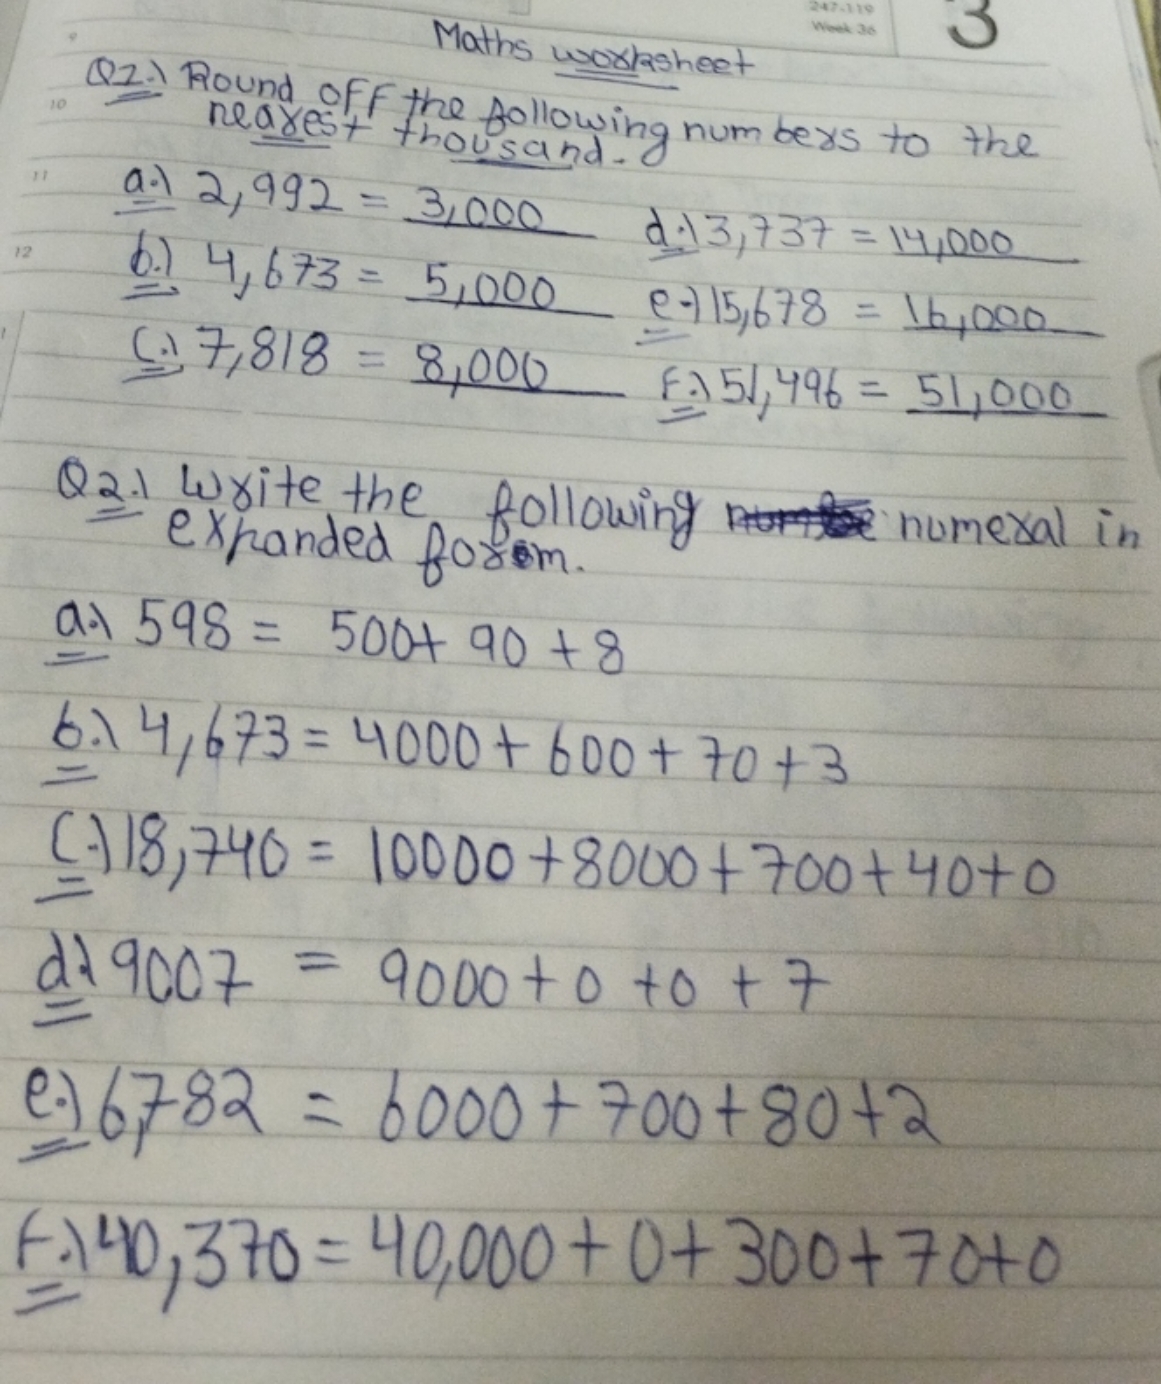 247-119
Week 36
3
9
Maths worksheet
Q1.) Round off the following numbers to the
10
nearest thousand.
11
a.) 2,992 = 3,000
d.) 13,737 = 14,000
12
b.) 4,673 = 5,000
e.) 15,678 = 16,000
1
c.) 7,818 = 8,000
f.) 51,496 = 51,000
Q2.) Write the following numeral in
expanded form.
a.) 598 = 500+ 90 + 8
b.) 4,673 = 4000 + 600 + 70 + 3
c.) 18,740 = 10000 + 8000 + 700 + 40 + 0
d.) 9007 = 9000 + 0 + 0 + 7
e.) 6,782 = 6000 + 700 + 80 + 2
f.) 40,370 = 40,000 + 0 + 300 + 70 + 0